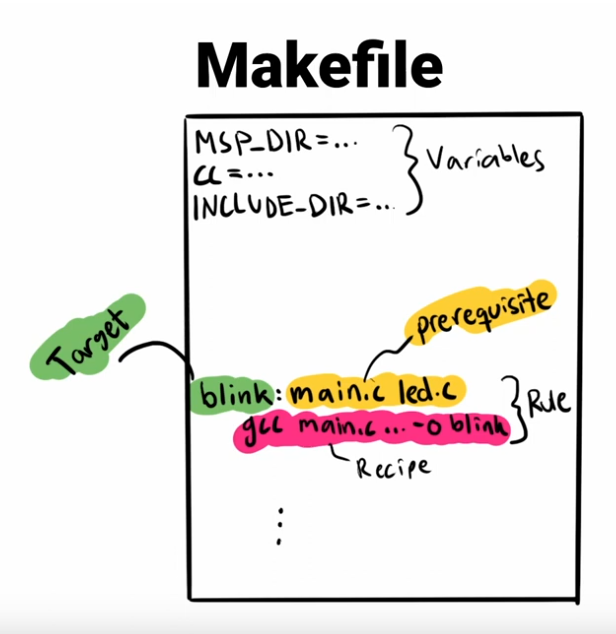 Makefile
MSP_DIR=...
CC=...
INCLUDE_DIR=...
Variables
Target
prerequisite
blink: main.c led.c
gcc main.c ... -o blink
Rule
Recipe